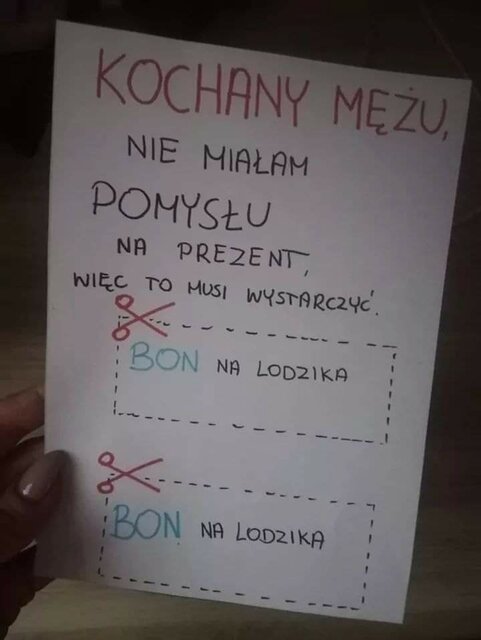 KOCHANY MĘŻU,
NIE MIAŁAM
POMYSŁU
NA PREZENT,
WIĘC TO MUSI WYSTARCZYĆ.
BON NA LODZIKA
BON NA LODZIKA